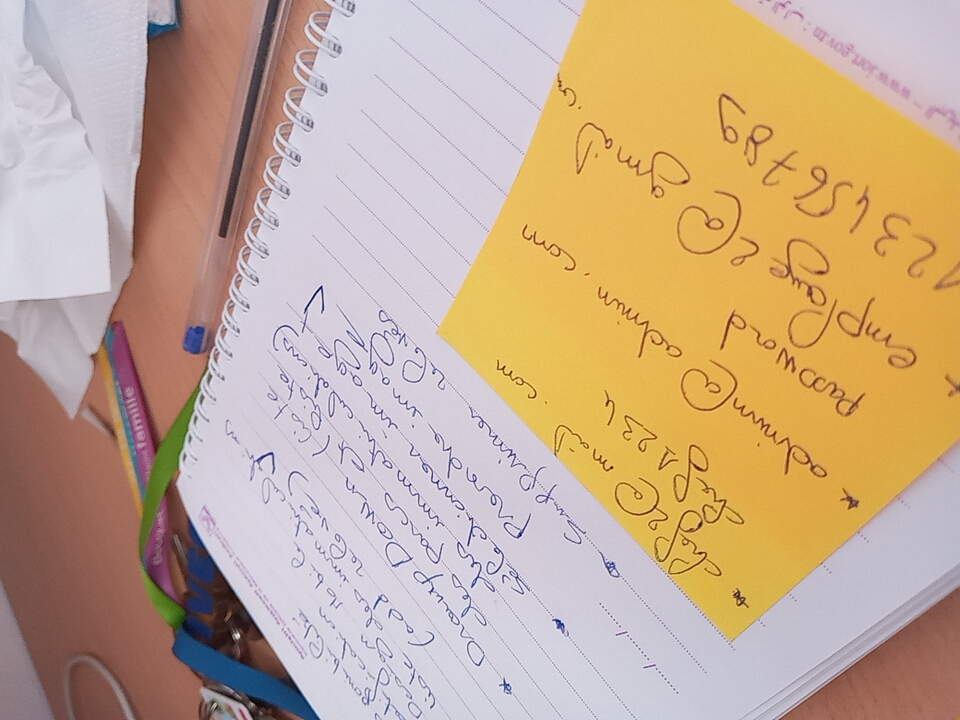 famille
Bouquet
Design mobile
liste des immatriculations
(add relevé)
* DroupDown (liste
des parcs et liste
des immatriculations)
* sélectionner image
Prendre image
* Supprimer relevés
..../..../....
* chef2@mail.com
chef1234
* admin@admin.com
password
* employe2@gmail.com
123456789
www.iort.gov.tn